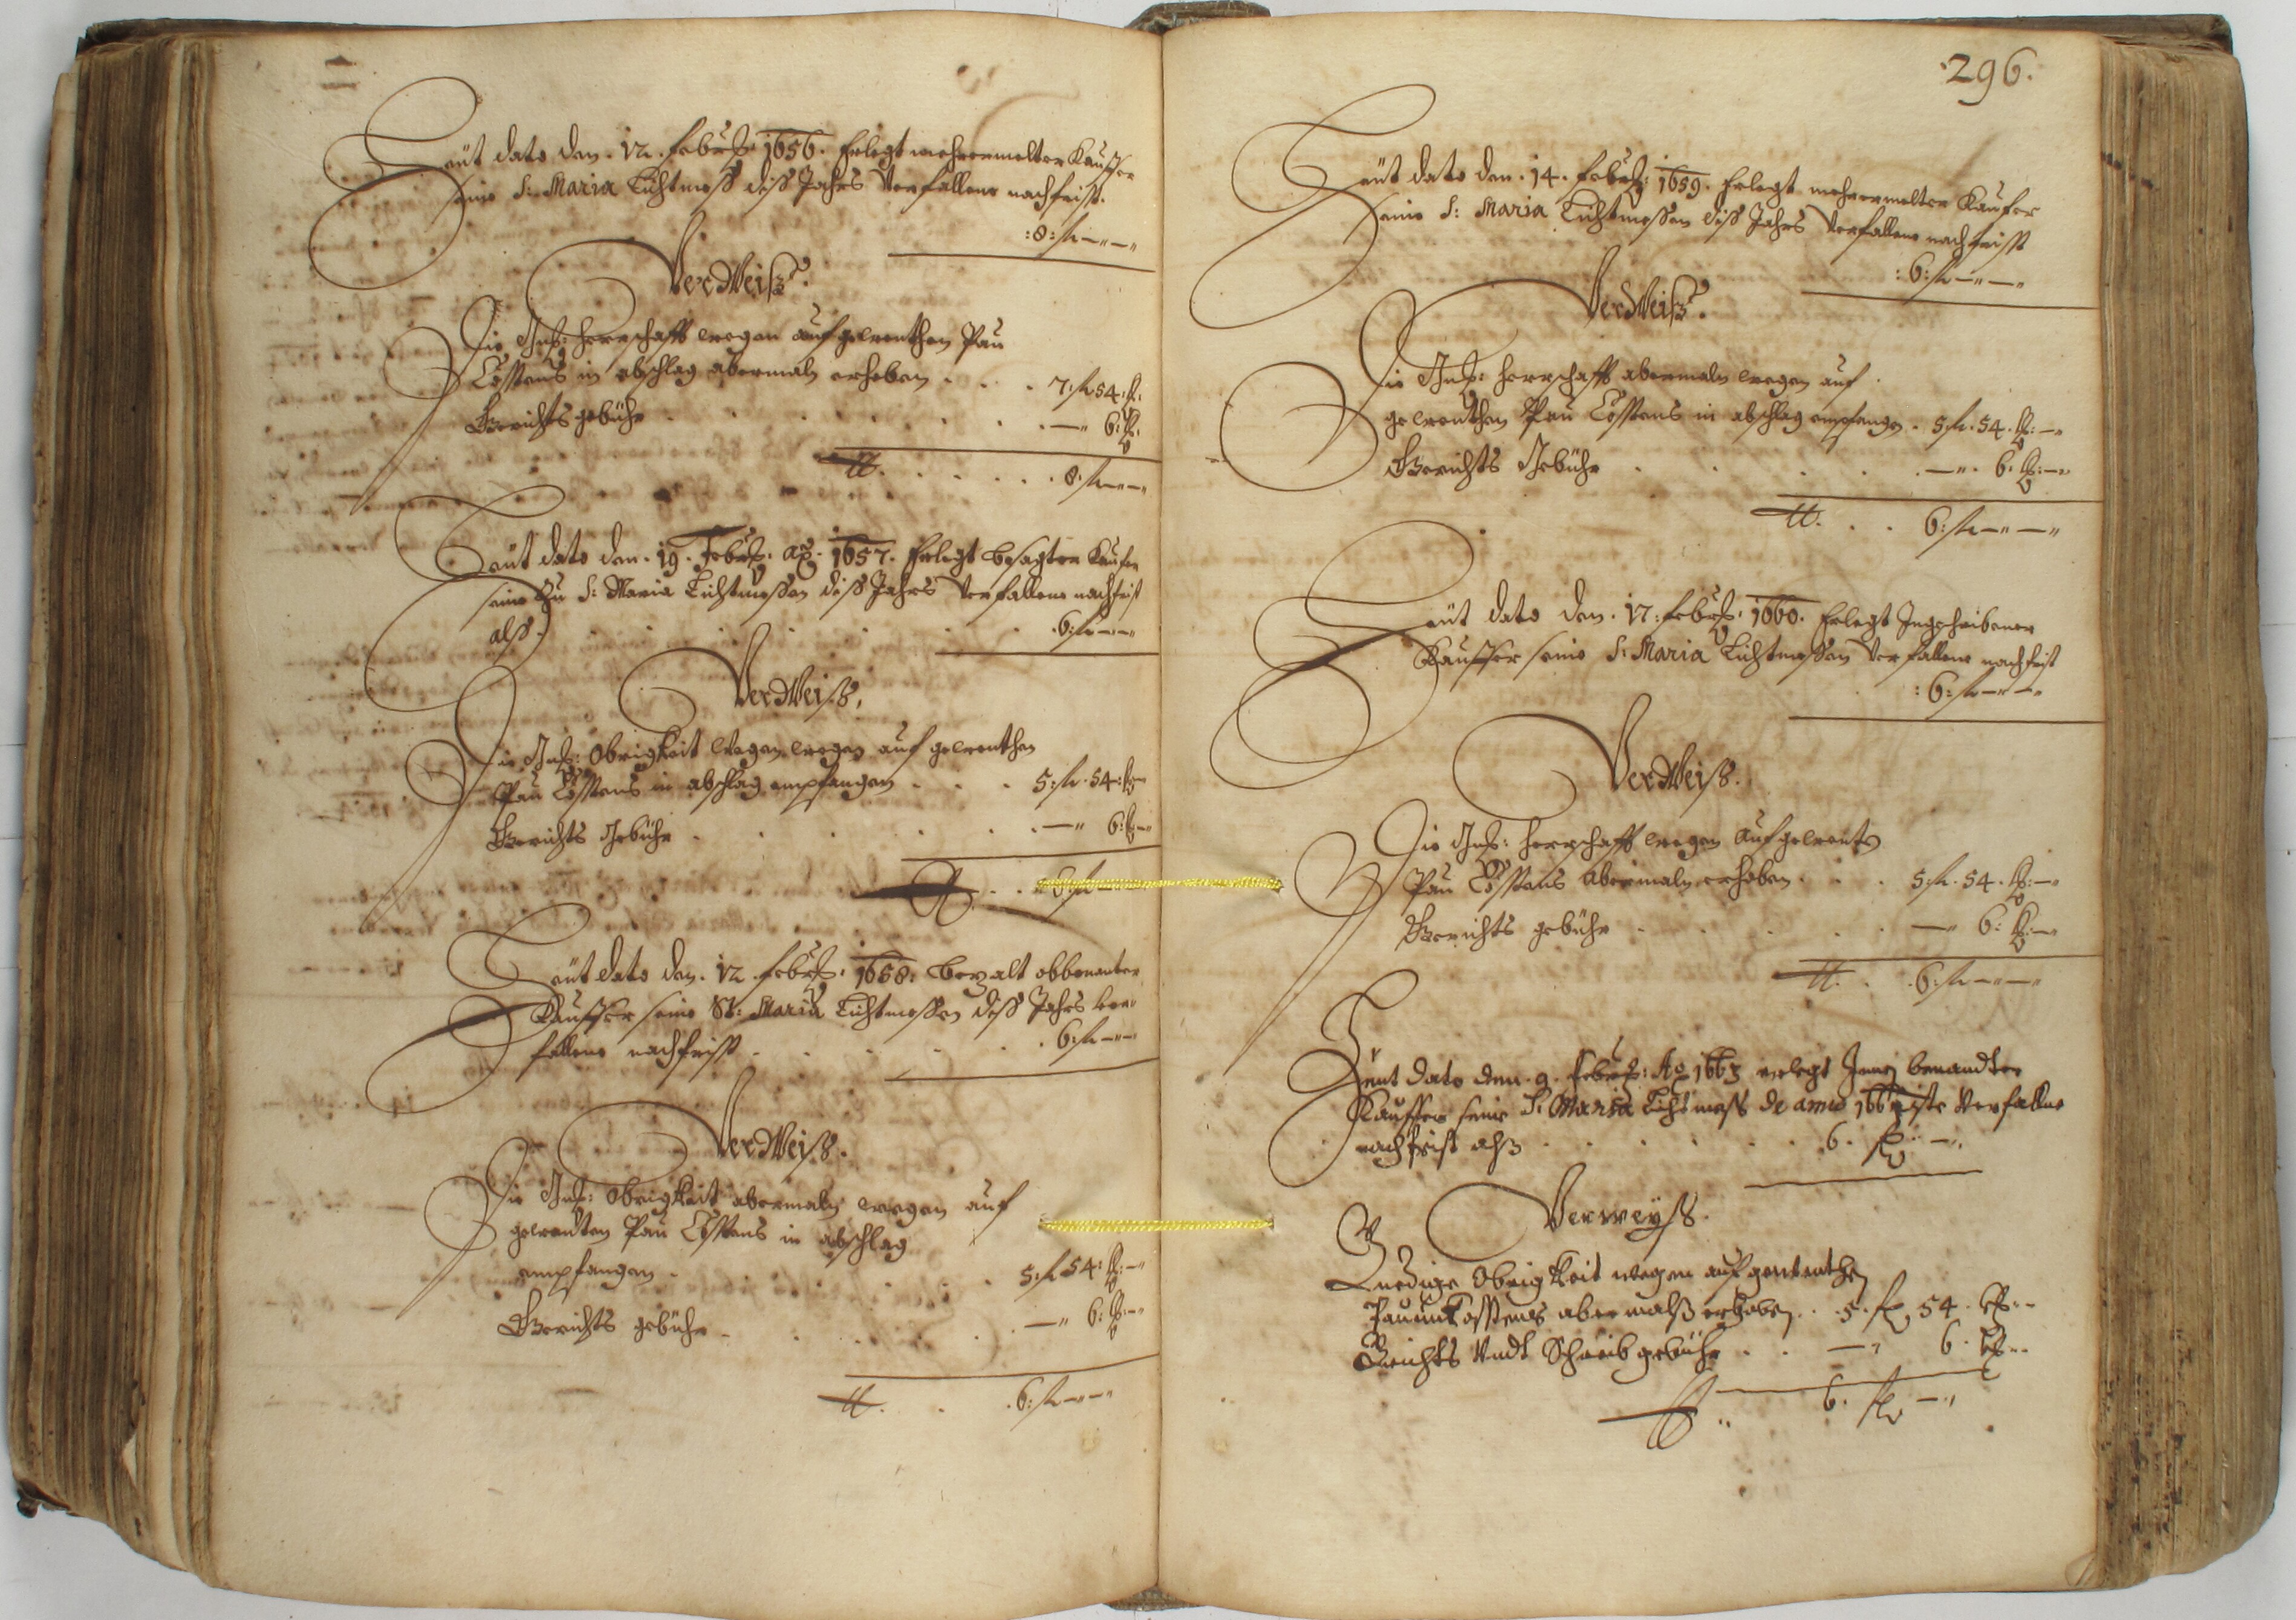 Heüt dato den. 12. Febr: 1656. Erlegt mehrermelter Kauffer
seine S: Maria Lichtmeß diß Jahrs Verfallene nachfrist.
:8: fl — —
Verweiß.
Die Gnd: Herrschafft wegen aufgewenthen Pau
Costens in abschlag abermaln erhoben . . . 7: fl 54: kr:
Gerichts gebühr . . . . . . — 6: kr:
tt. . . . . . 8: fl — —
Heüt dato den. 19. Febr: Ao. 1657. Erlegt besagter Kaufer
seine Zu S: Maria Lichtmessen diß Jahrs Verfallene nachfrist
alß . . . . . . . 6: fl — —
Verweiß.
Die Gnd: Obrigkeit Wegen wegen aufgewenthen
Pau Costens in abschlag empfangen . . . 5: fl. 54: kr —
Gerichts Gebühr . . . . . . — 6: kr —
tt. . . 6: fl —
Heüt dato den. 12. Febr: 1658: bezalt obbenanter
Kauffer seine St: Maria Lichtmessen diß Jahrs ver-
fallene nachfrist . . . . . 6: fl — —
Verweiß.
Die Gnd: Obrigkeit abermaln wegen auf
gewenten Pau Costens in abschlag
empfangen . . . . . . 5: fl 54: kr: —
Gerichts gebühr . . . . . — 6: kr: —
tt. . . 6: fl — —
296.
Heüt dato den. 14. Febr: 1659. Erlegt mehrermelter Kaufer
seine S: Maria Lichtmessen diß Jahrs Verfallene nachfrist
:6: fl — —
Verweiß.
Die Gnd: Herrschafft abermaln wegen auf
gewenthen Pau Costens in abschlag empfangen . 5 fl. 54. kr: —
Gerichts Gebühr . . . . — 6. kr: —
tt. . . 6: fl — —
Heüt dato den. 17: Febr: 1660. Erlegt
Kauffer seine S: Maria Lichtmessen Verfallene nachfrist
:6: fl — —
Verweiß.
Die Gnd: Herrschafft wegen Aufgewents
Pau Costens Abermaln erhoben . . . 5: fl. 54. kr: —
Gerichts gebühr . . . . . — 6: kr: —
tt. . 6: fl — —
Heut dato den. 9. Febr: Ao 1663 erlegt benandter
Kauffer seine S: Maria Lichtmess de anno Verfallne
nachfrist alß . . . . . . 6. fl: —
Verweyß.
Gnedige Obrigkeit wegen aufgewenthen
Costens abermalß erhoben . . 5. fl 54. kr: —
Gerichts Vndt Schreib gebühr . . — 6. kr —
tt .. 6. fl —